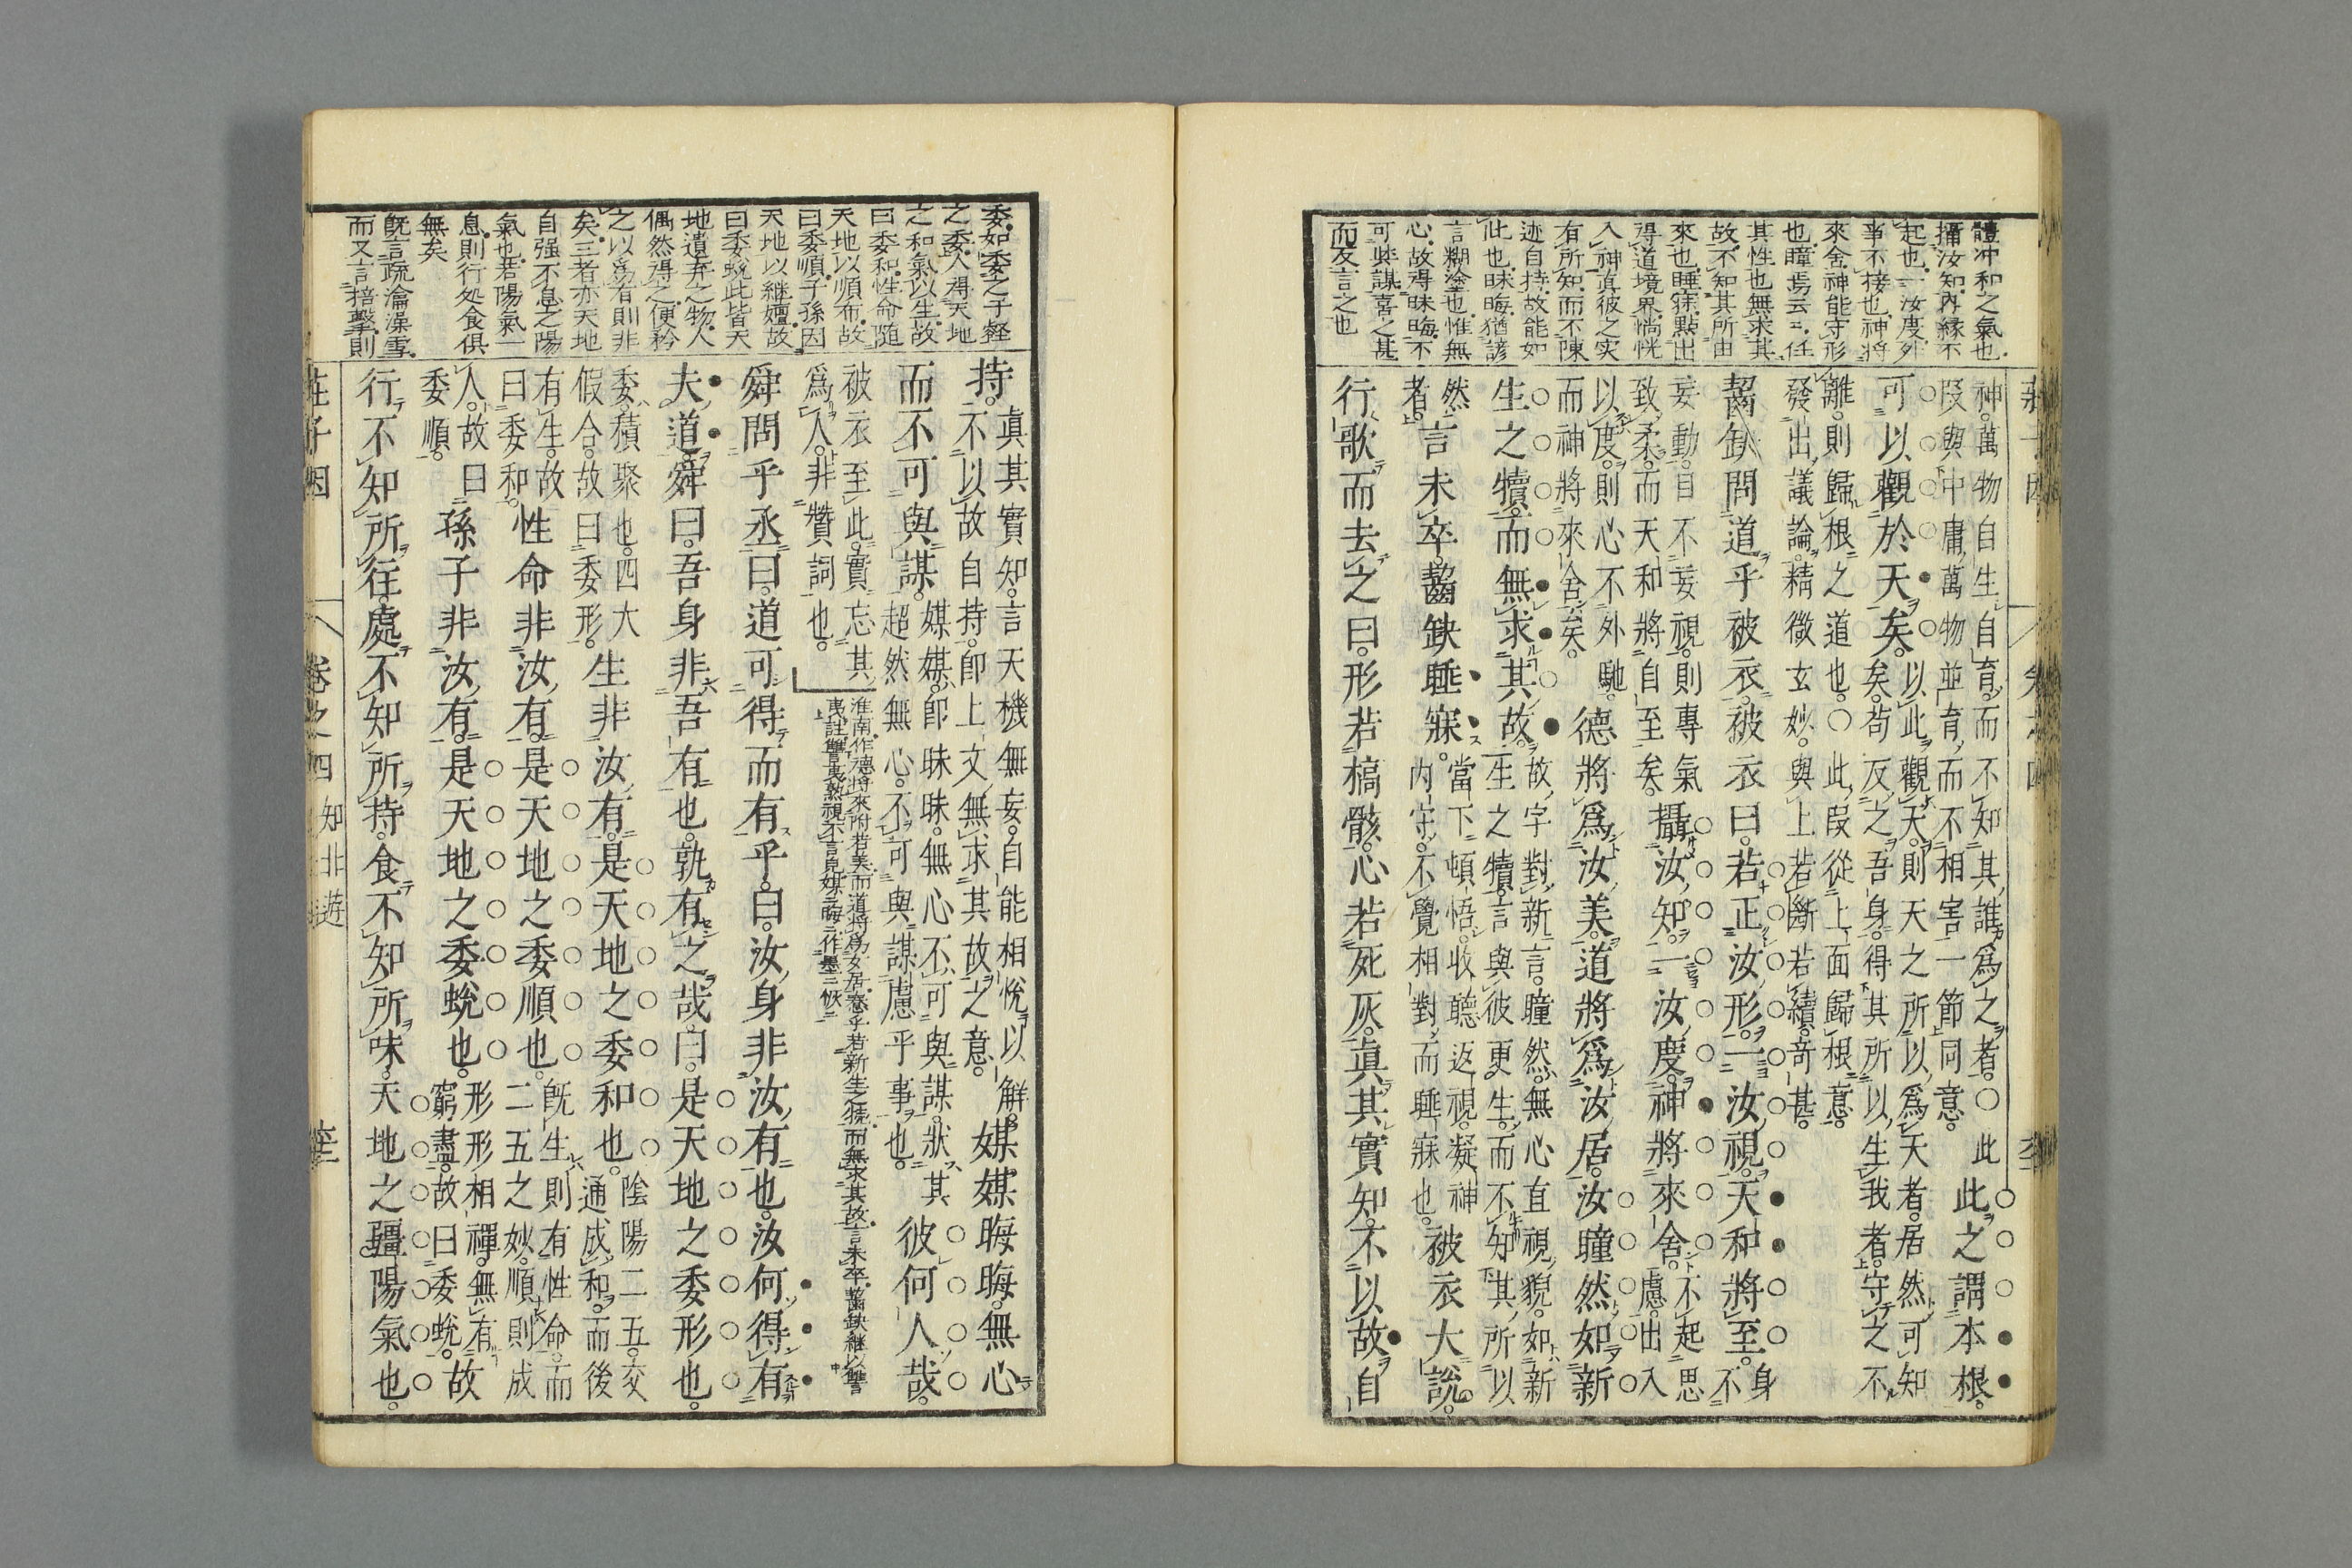 體冲和之氣也
攝汝知內緣不
起也一汝度外
事不接也神將
來舍神能守形
也瞳焉云云任
其性也無求其
故不知其所由
來也睡寐點出
得道境界惝恍
入神眞彼之实
有所知而不陳
迹自持故能如
此也昧晦猶諺
言糊塗也惟無
心故得昧晦不
可與謀喜之甚
而反言之也
神萬物自生自育而不知其誰爲之者○此
段與中庸萬物並育而不相害一節同意此之謂本根
可以觀於天矣以此觀天則天之所以爲天者居然可知
矣苟反之吾身得其所以生我者守之不
離則歸根之道也○此段從上面歸根意
發出議論精微玄妙與上若斷若續奇甚
齧缺問道乎被衣被衣曰若正汝形一汝視天和將至身不
妄動目不妄視則專氣
致柔而天和將自至矣攝汝知一汝度神將來舍不起思慮出入
以度則心不外馳
而神將來舍矣德將爲汝美道將爲汝居汝瞳然如新
生之犢而無求其故故字對新言瞳然無心直視貌如新
生之犢言與彼更生而不知其所以
然言未卒齧缺睡寐當下頓悟收聽返視凝神
者內守不覺相對而睡寐也被衣大說
行歌而去之曰形若槁骸心若死灰眞其實知不以故自
委如委之子經
之委人得天地
之和氣以生故
曰委和性命隨
天地以順布故
曰委順子孫因
天地以継嬗故
曰委蛻此皆天
地遺弃之物人
偶然得之便矜
之以爲有則非
矣三者亦天地
自强不息之陽
氣也若陽氣一
息則行処食俱
無矣
旣言疏瀹澡雪
而又言掊擊則
持眞其實知言天機無妄自能相悅以解
不以故自持卽上文無求其故之意媒媒晦晦無心
而不可與謀媒媒卽昧昧無心不可與謀狀其
超然無心不可與謀慮乎事也彼何人哉
被衣至此實忘其
爲人非贊詞也淮南作德將來附若美而道將爲女居惷乎若新生之犢而無求其故言未卒齧缺継以讐
夷註讐夷熟視不言見媒晦作墨恢
舜問乎丞曰道可得而有乎曰汝身非汝有也汝何得有
夫道舜曰吾身非吾有也孰有之哉曰是天地之委形也
委積聚也四大
假合故曰委形生非汝有是天地之委和也陰陽二五交
通成和而後
有生故
曰委和性命非汝有是天地之委順也旣生則有性命而
二五之妙順則成
人故曰
委順孫子非汝有是天地之委蛻也形形相禪無有
窮盡故曰委蛻故
行不知所往處不知所持食不知所味天地之疆陽氣也
莊子因
卷之四
知北遊